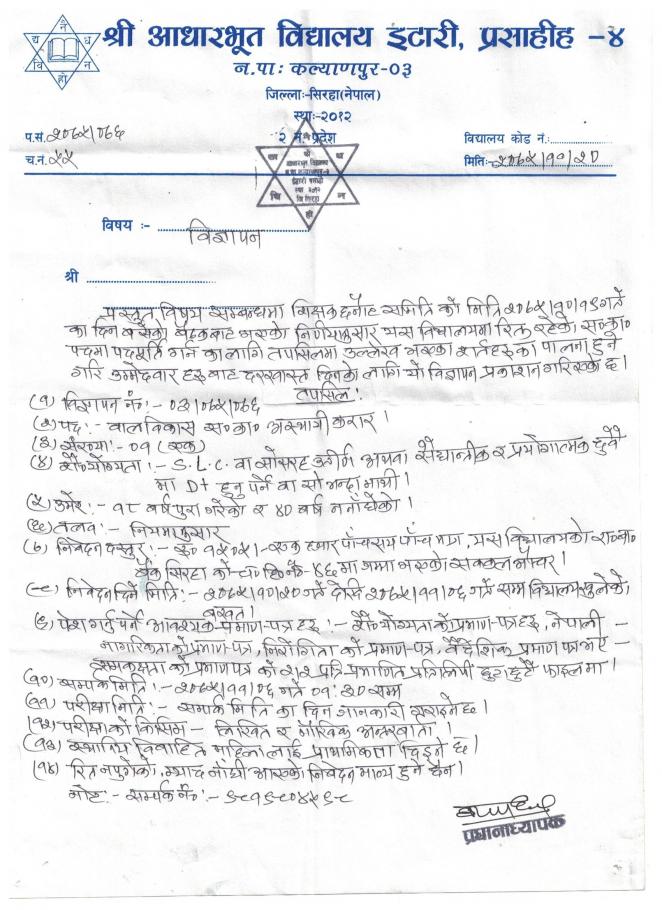 श्री आधारभूत विद्यालय इटारी, प्रसाहीह -४
न.पाः कल्याणपुर-०३
जिल्लाः-सिरहा(नेपाल)
स्थाः-२०१२
प.सं. २०७५/०७६
२ नं. प्रदेश
विद्यालय कोड नं.:
च.नं. ५५
मितिः- २०७५/१०/२०
विषय :- विज्ञापन
श्री
प्रस्तुत विषय सम्बन्धमा शिक्षक छनौट समिति को मिति २०७५/१०/१९ गते
का दिन बसेको बैठकबाट भएको निर्णयानुसार यस विद्यालयमा रिक्त रहेको स०का०
पदमा पदपूर्ति गर्न का लागि तपसिलमा उल्लेख भएका शर्तहरुको पालना हुने
गरि उम्मेदवार हरु बाट दरखास्त दिनको लागि यो विज्ञापन प्रकाशन गरिएको छ।
तपसिल
(१) विज्ञापन नं० :- ०३/०७५/०७६
(२) पद :- बालविकास स०का० अस्थायी करार।
(३) संख्या :- ०१ (एक)
(४) शै० योग्यता :- S.L.C. वा सोसरह उतीर्ण अथवा सैद्धान्तीक र प्रयोगात्मक दुवै
मा D+ हुनु पर्ने वा सो भन्दा माथी।
(५) उमेर :- १८ वर्ष पुरा गरेको र ४० वर्ष ननाघेको।
(६) तलव :- नियमानुसार
(७) निवेदन दस्तुर :- रु० १५०५/- एक हजार पाँचसय पाँच मात्र, यस विद्यालयको रा०बा०
बैंक सिरहा को मा जम्मा भएको सक्कल भौचर।
(८) निवेदन दिने मिति :- २०७५/१०/२० गते देखि २०७५/११/०६ गते सम्म विद्यालय खुलेको
बखत।
(९) पेश गर्नु पर्ने आवश्यक प्रमाण-पत्र हरु :- शै० योग्यता को प्रमाण-पत्रहरु, नेपाली -
नागरिकता को प्रमाण-पत्र, निरोगिता को प्रमाण-पत्र, वैदेशिक प्रमाण पत्र भए -
समकक्षता को प्रमाण पत्र को २/२ प्रति प्रमाणित प्रतिलिपी छुट्टा छुट्टै फाइल मा।
(१०) सम्पर्क मिति :- २०७५/११/०६ गते ०१:३० सम्म
(११) परीक्षा मिति :- सम्पर्क मिति का दिन जानकारी गराइने छ।
(१२) परीक्षा को किसिम - लिखित र मौखिक अन्तरवार्ता।
(१३) स्थानिय विवाहित महिला लाई प्राथमिकता दिइने छ।
(१४) रित नपुगेको, म्याद नाघी आएको निवेदन मान्य हुने छैन।
नोट :- सम्पर्क नं० :-
प्रधानाध्यापक